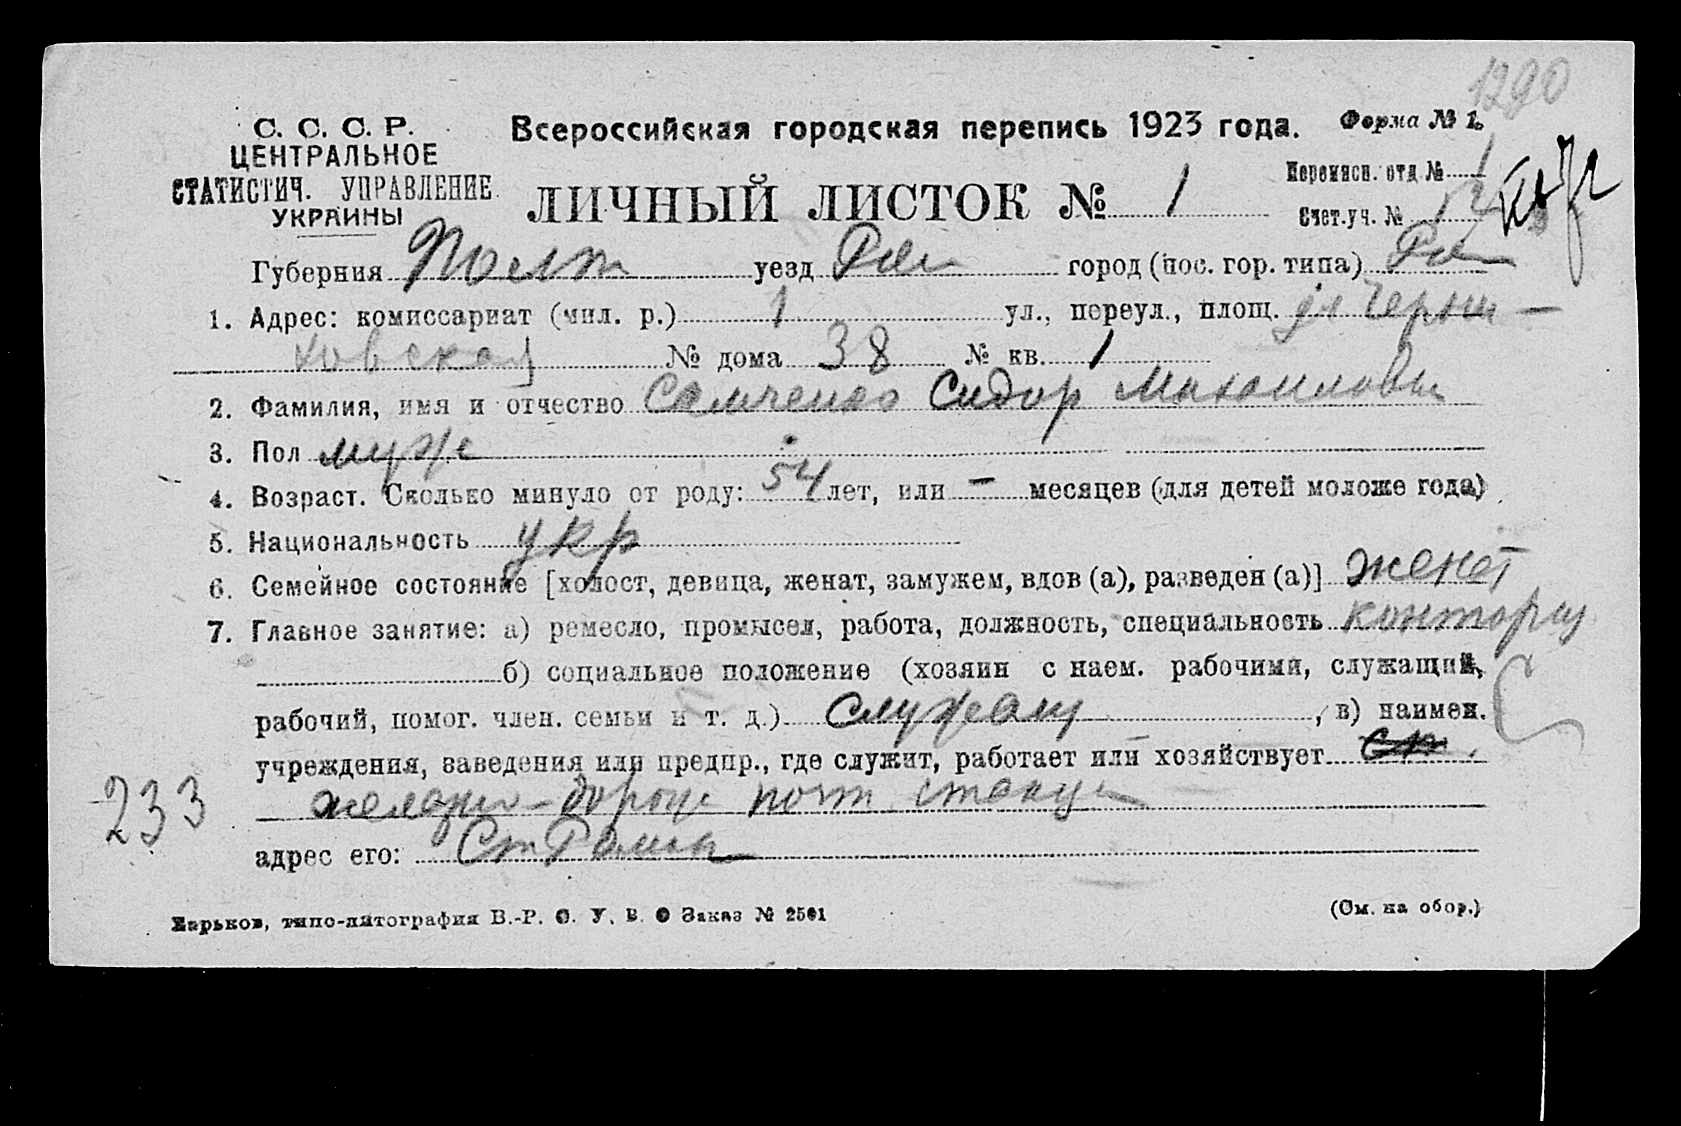 1290
С. С. С. Р.
ЦЕНТРАЛЬНОЕ
СТАТИСТИЧ. УПРАВЛЕНИЕ
УКРАИНЫ
Всероссийская городская перепись 1923 года. Форма № 1.
ЛИЧНЫЙ ЛИСТОК № 1
Переписн. отд № 1
Счет.уч. №
Губерния Полт уезд Ром город (пос. гор. типа) Ром
1. Адрес: комиссариат (мил. р.) 1 ул., переул., площ.
ховская № дома 38 № кв. 1
2. Фамилия, имя и отчество Самченко Сидор Михайлович
3. Пол муж
4. Возраст. Сколько минуло от роду: 54 лет, или — месяцев (для детей моложе года)
5. Национальность укр
6. Семейное состояние [холост, девица, женат, замужем, вдов (а), разведен (а)] женат
7. Главное занятие: а) ремесло, промысел, работа, должность, специальность конторщ
б) социальное положение (хозяин с наем. рабочими, служащий,
рабочий, помог. член. семьи и т. д.) служащ , в) наимен. С
учреждения, заведения или предпр., где служит, работает или хозяйствует
233
железно-дорож почт станция
адрес его: Ст Ромны
Харьков, типо-литография В.-Р. С. У. В. О Заказ № 2501
(См. на обор.)